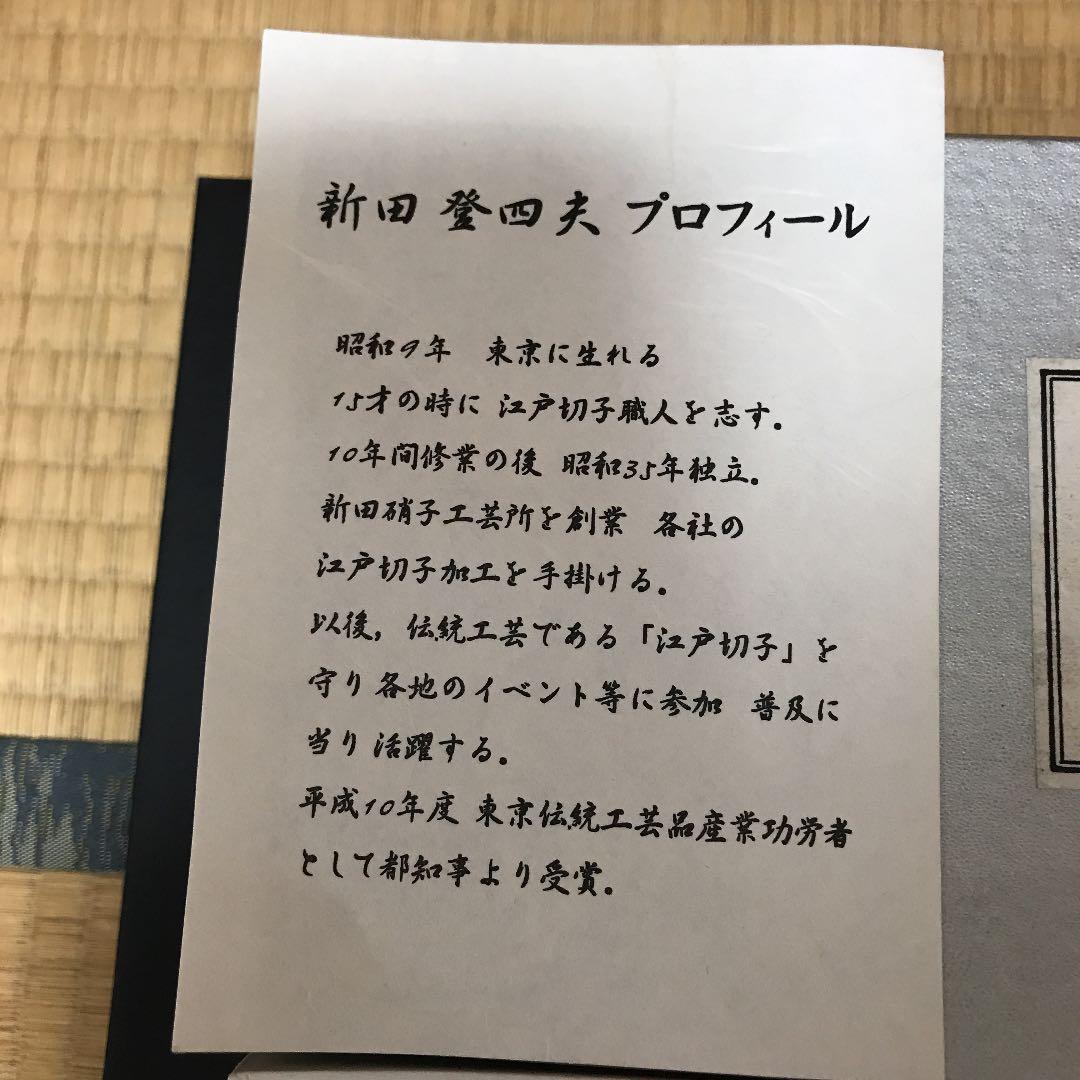 新田 登四夫 プロフィール
昭和9年 東京に生れる
15才の時に 江戸切子職人を志す。
10年間修業の後 昭和35年独立。
新田硝子工芸所を創業 各社の
江戸切子加工を手掛ける。
以後, 伝統工芸である「江戸切子」を
守り各地のイベント等に参加 普及に
当り活躍する。
平成10年度 東京伝統工芸品産業功労者
として都知事より受賞。